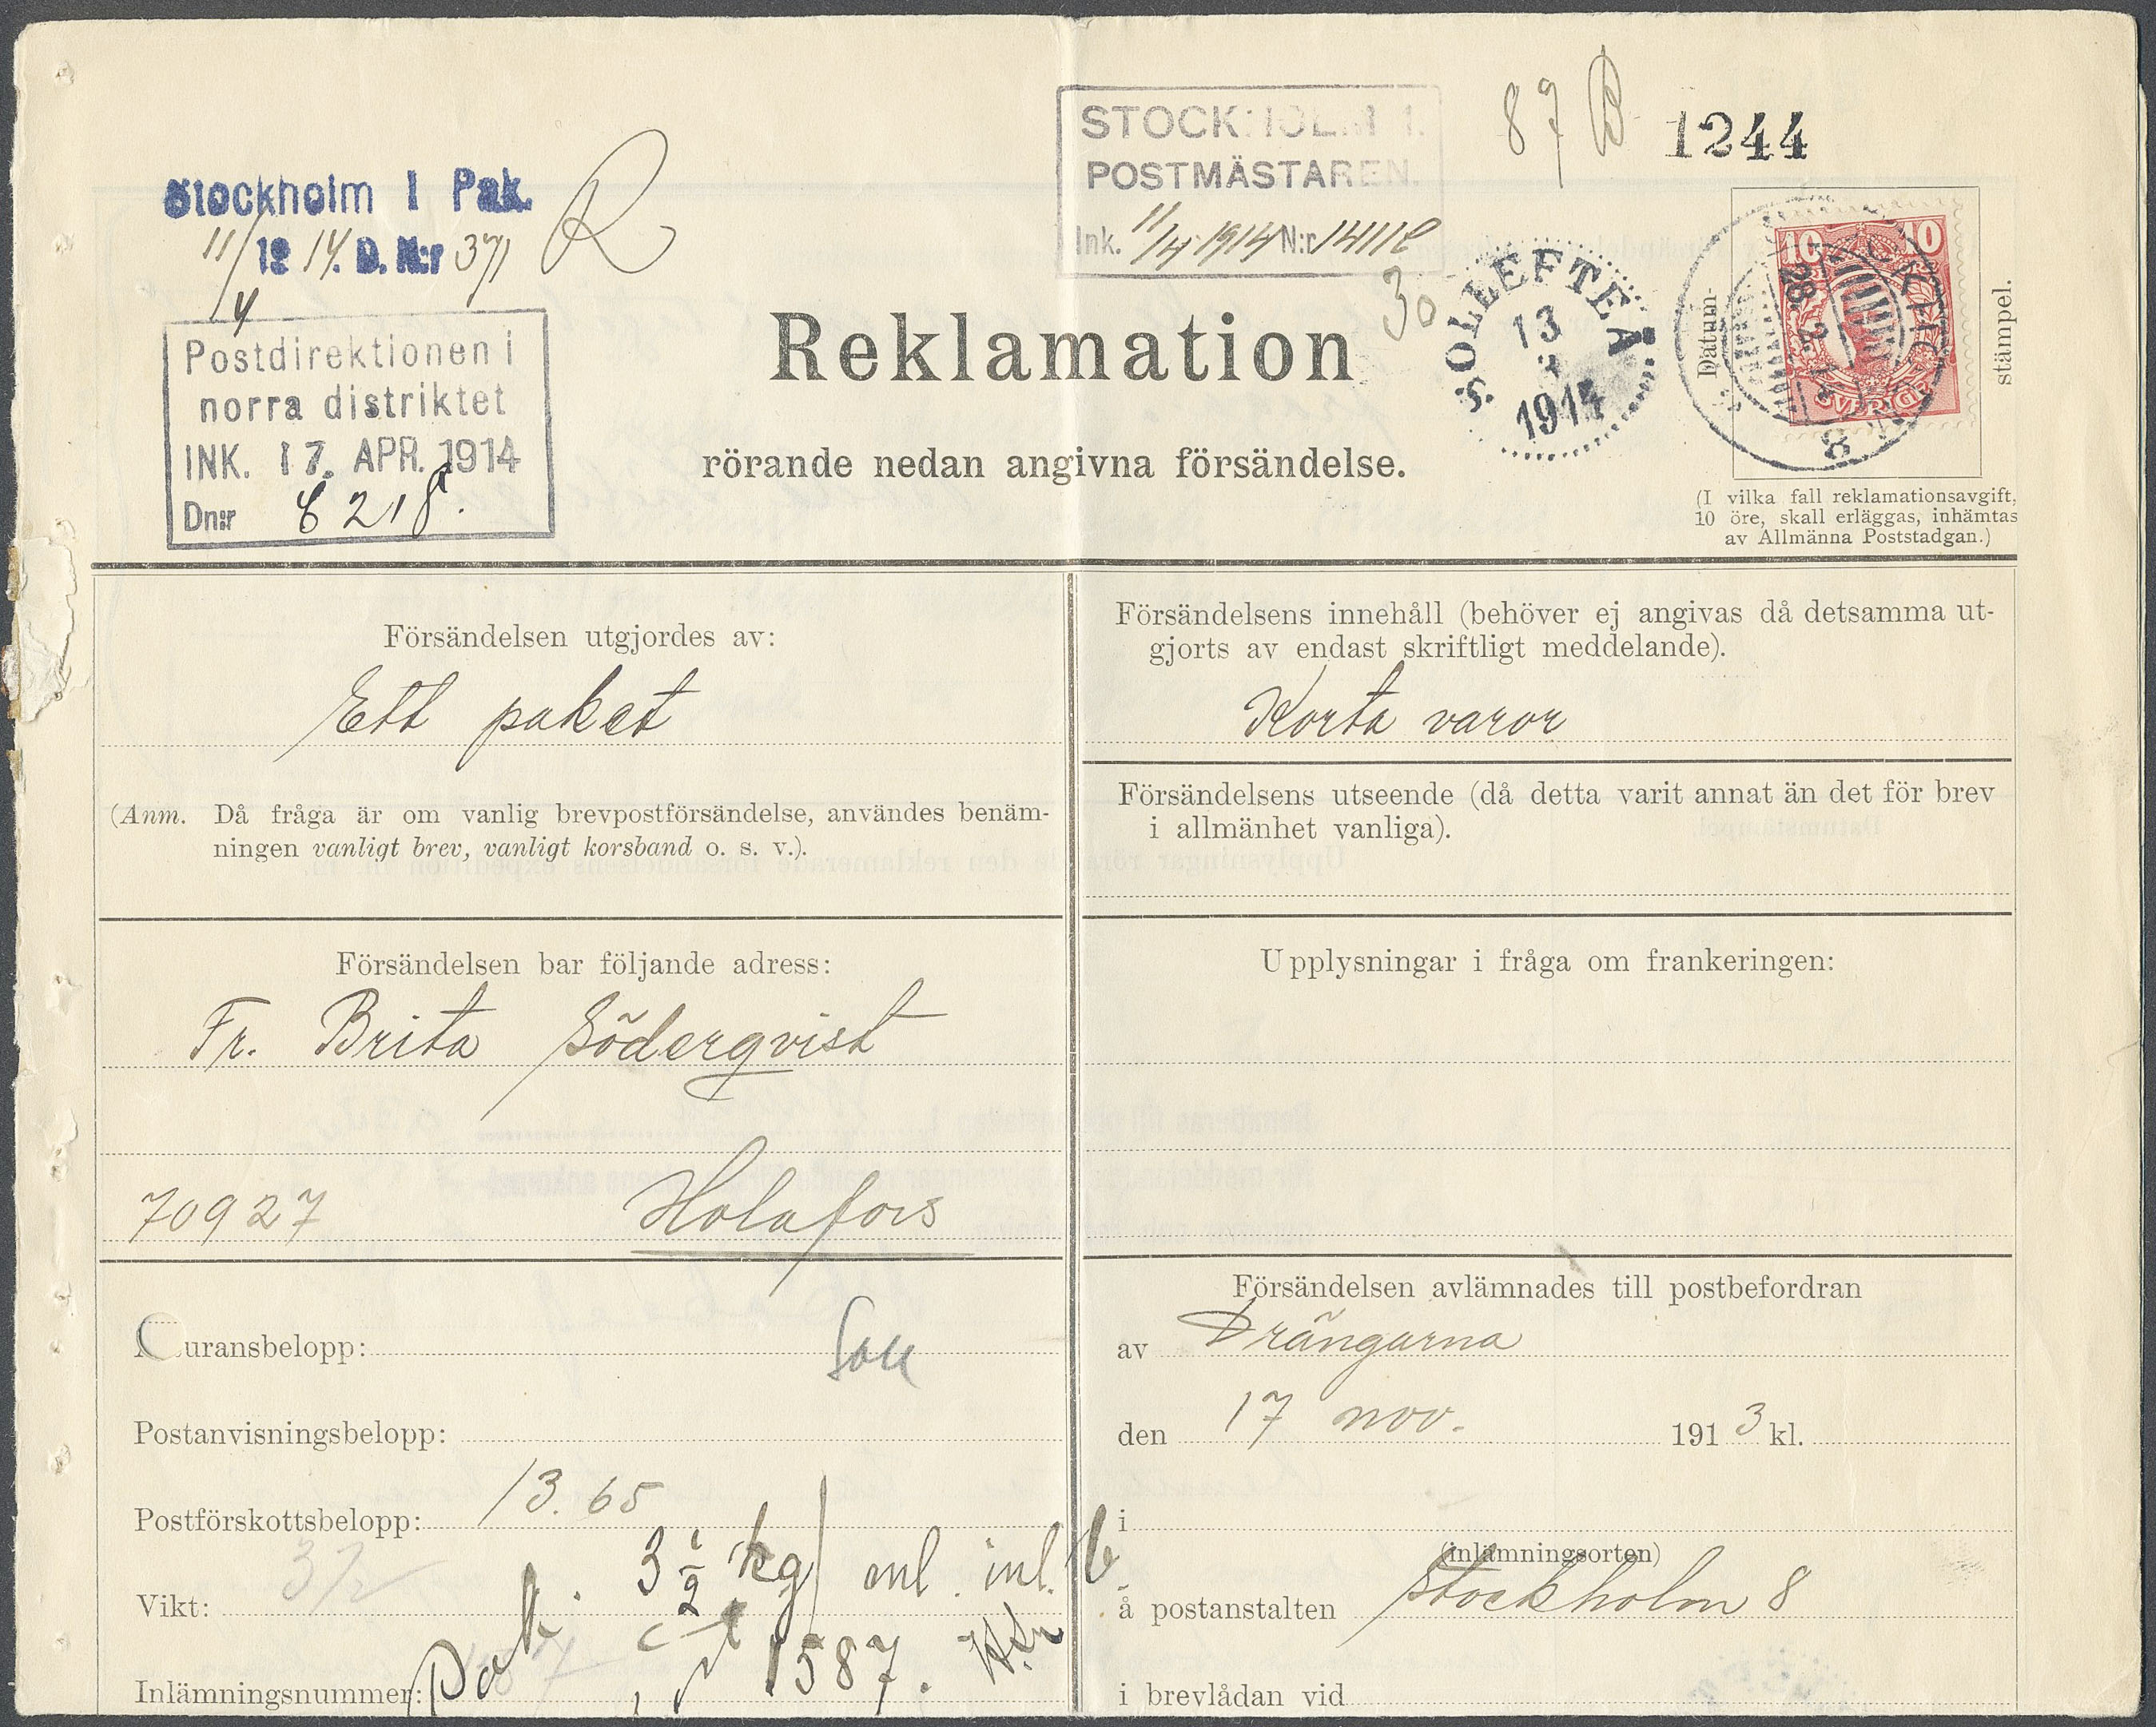 87 B 1244
STOCKHOLM 1.
POSTMÄSTAREN.
Ink. 11/4 1914 N:r
Stockholm 1 Pak.
11/4 19 14. D. N:r 371
R
Postdirektionen i
norra distriktet
INK. 17. APR. 1914
Dn:r 6218.
30
SOLLEFTEÅ
13
1914
Datum-
stämpel.
10 10
SVERIGE
8
Reklamation
rörande nedan angivna försändelse.
(I vilka fall reklamationsavgift,
10 öre, skall erläggas, inhämtas
av Allmänna Poststadgan.)
Försändelsen utgjordes av:
Ett paket
(Anm. Då fråga är om vanlig brevpostförsändelse, användes benäm-
ningen vanligt brev, vanligt korsband o. s. v.).
Försändelsen bar följande adress:
Fr. Brita Söderqvist
70927 Holafors
uransbelopp:
Postanvisningsbelopp:
Postförskottsbelopp: 13.65
3 1/2 kg enl. inl.
Vikt: 3 1/2
Inlämningsnummer: Pak. 1587.
Försändelsens innehåll (behöver ej angivas då detsamma ut-
gjorts av endast skriftligt meddelande).
Korta varor
Försändelsens utseende (då detta varit annat än det för brev
i allmänhet vanliga).
Upplysningar i fråga om frankeringen:
Försändelsen avlämnades till postbefordran
av Drängarna
den 17 nov. 1913 kl.
i
(inlämningsorten)
å postanstalten Stockholm 8
i brevlådan vid